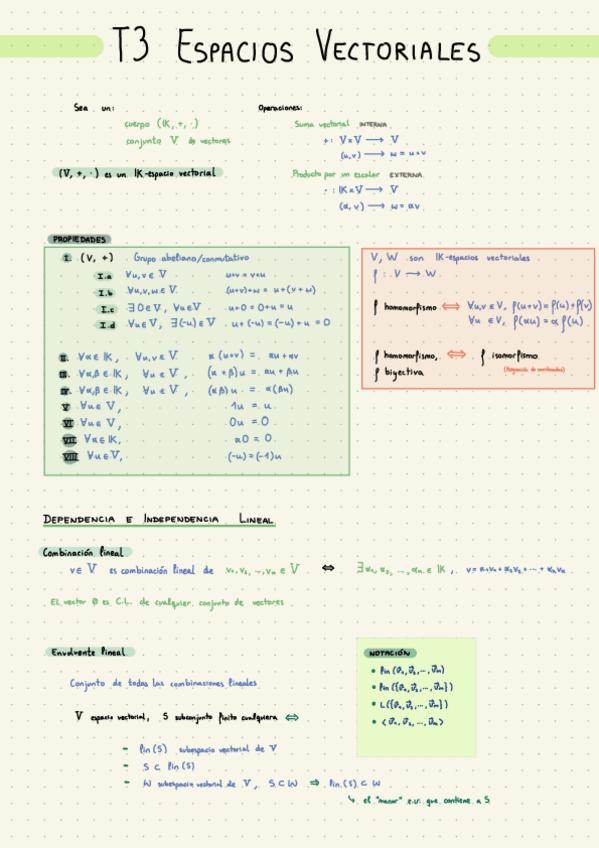 T3 ESPACIOS VECTORIALES
Sea un:
cuerpo (IK, +, ·)
conjunto V de vectores
(V, +, ·) es un IK-espacio vectorial
Operaciones:
Suma vectorial INTERNA
+ : V×V ⟶ V
(u,v) ⟶ w = u+v
Producto por un escalar EXTERNA
· : IK×V ⟶ V
(α, v) ⟶ w = αv
PROPIEDADES
I (V, +) Grupo abeliano/conmutativo
I.a ∀u,v ∈ V u+v = v+u
I.b ∀u,v,w ∈ V (u+v)+w = u+(v+w)
I.c ∃ 0 ∈ V, ∀u∈V u+0 = 0+u = u
I.d ∀u∈V, ∃(-u)∈V u+(-u) = (-u)+u = 0
II ∀α∈IK, ∀u,v∈V α(u+v) = αu+αv
III ∀α,β∈IK, ∀u∈V, (α+β)u = αu+βu
IV ∀α,β∈IK, ∀u∈V, (αβ)u = α(βu)
V ∀u∈V, 1u = u
VI ∀u∈V, 0u = 0
VII ∀α∈IK, α0 = 0
VIII ∀u∈V, (-u) = (-1)u
V, W son IK-espacios vectoriales
f : V ⟶ W
f homomorfismo ⟺ ∀u,v∈V, f(u+v) = f(u)+f(v)
∀u ∈V, f(αu) = αf(u)
f homomorfismo, ⟺ f isomorfismo
f biyectiva
DEPENDENCIA E INDEPENDENCIA LINEAL
Combinación lineal
v∈V es combinación lineal de v₁,v₂,...,vₙ ∈ V ⇔ ∃α₁,α₂,...,αₙ ∈ IK, v = α₁v₁+α₂v₂+...+αₙvₙ
El vector 0 es C.L. de cualquier conjunto de vectores
Envolvente lineal
Conjunto de todas las combinaciones lineales
V espacio vectorial, S subconjunto finito cualquiera ⇔
- lin(S) subespacio vectorial de V
- S ⊂ lin(S)
- W subespacio vectorial de V, S⊂W ⇒ lin(S) ⊂ W
↳ el "menor" e.v. que contiene a S
NOTACIÓN
• lin(v⃗₁,v⃗₂,...,v⃗ₘ)
• lin({v⃗₁,v⃗₂,...,v⃗ₘ})
• L({v⃗₁,v⃗₂,...,v⃗ₘ})
• <v⃗₁,v⃗₂,...,v⃗ₘ>